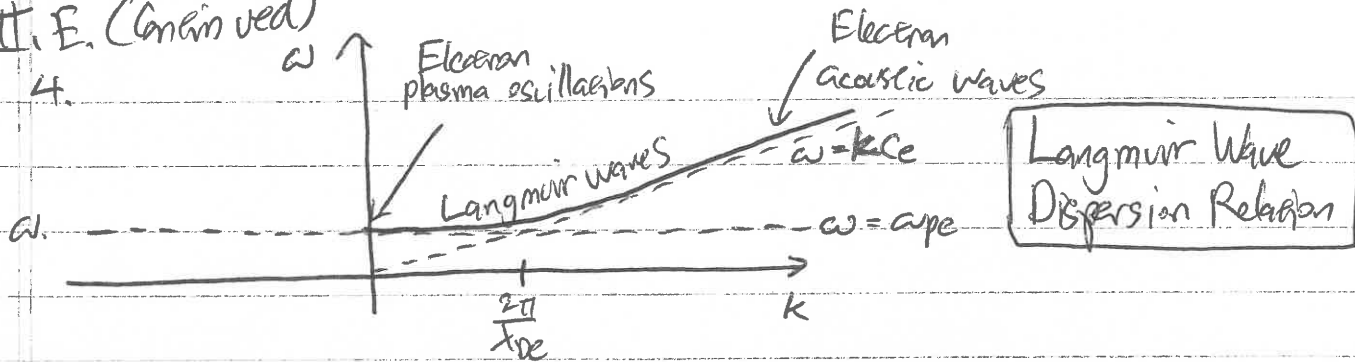 II. E. (Continued)
4.
ω
Electron
plasma oscillations
Electron
acoustic waves
Langmuir waves
ω=kce
Langmuir Wave
Dispersion Relation
ω.
ω=ωpe
2π
λDe
k